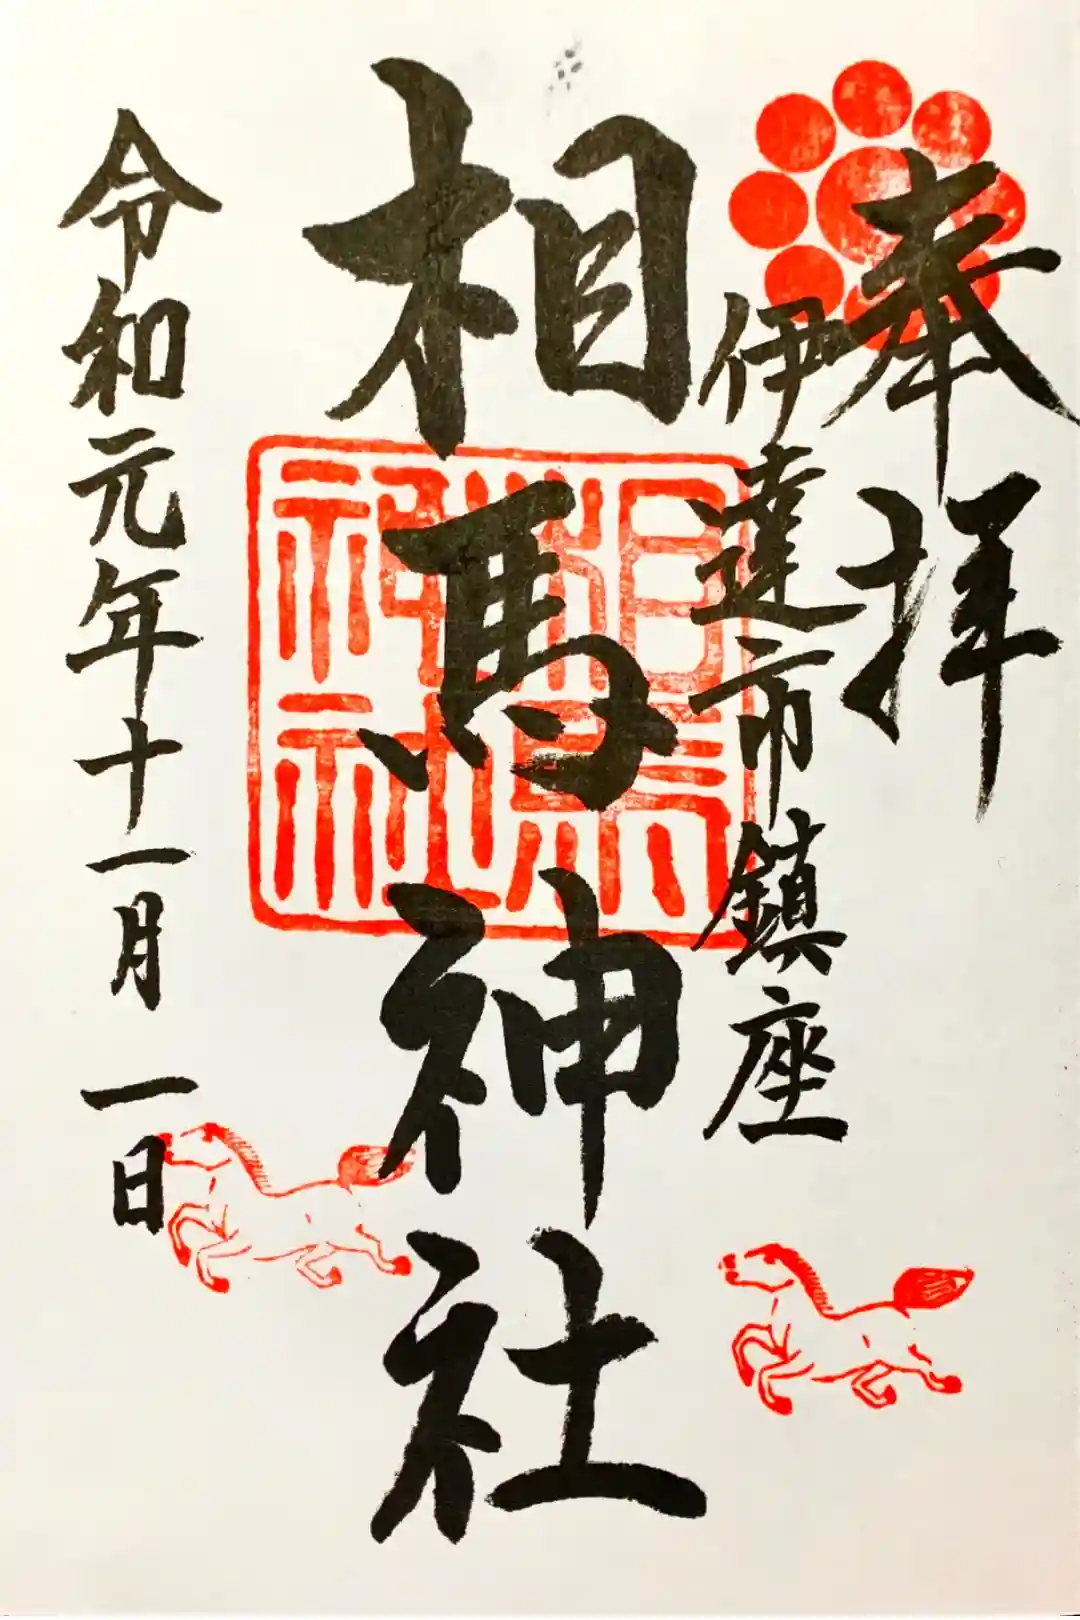 奉拝
伊達市鎮座
相馬神社
相馬神社
令和元年十一月一日